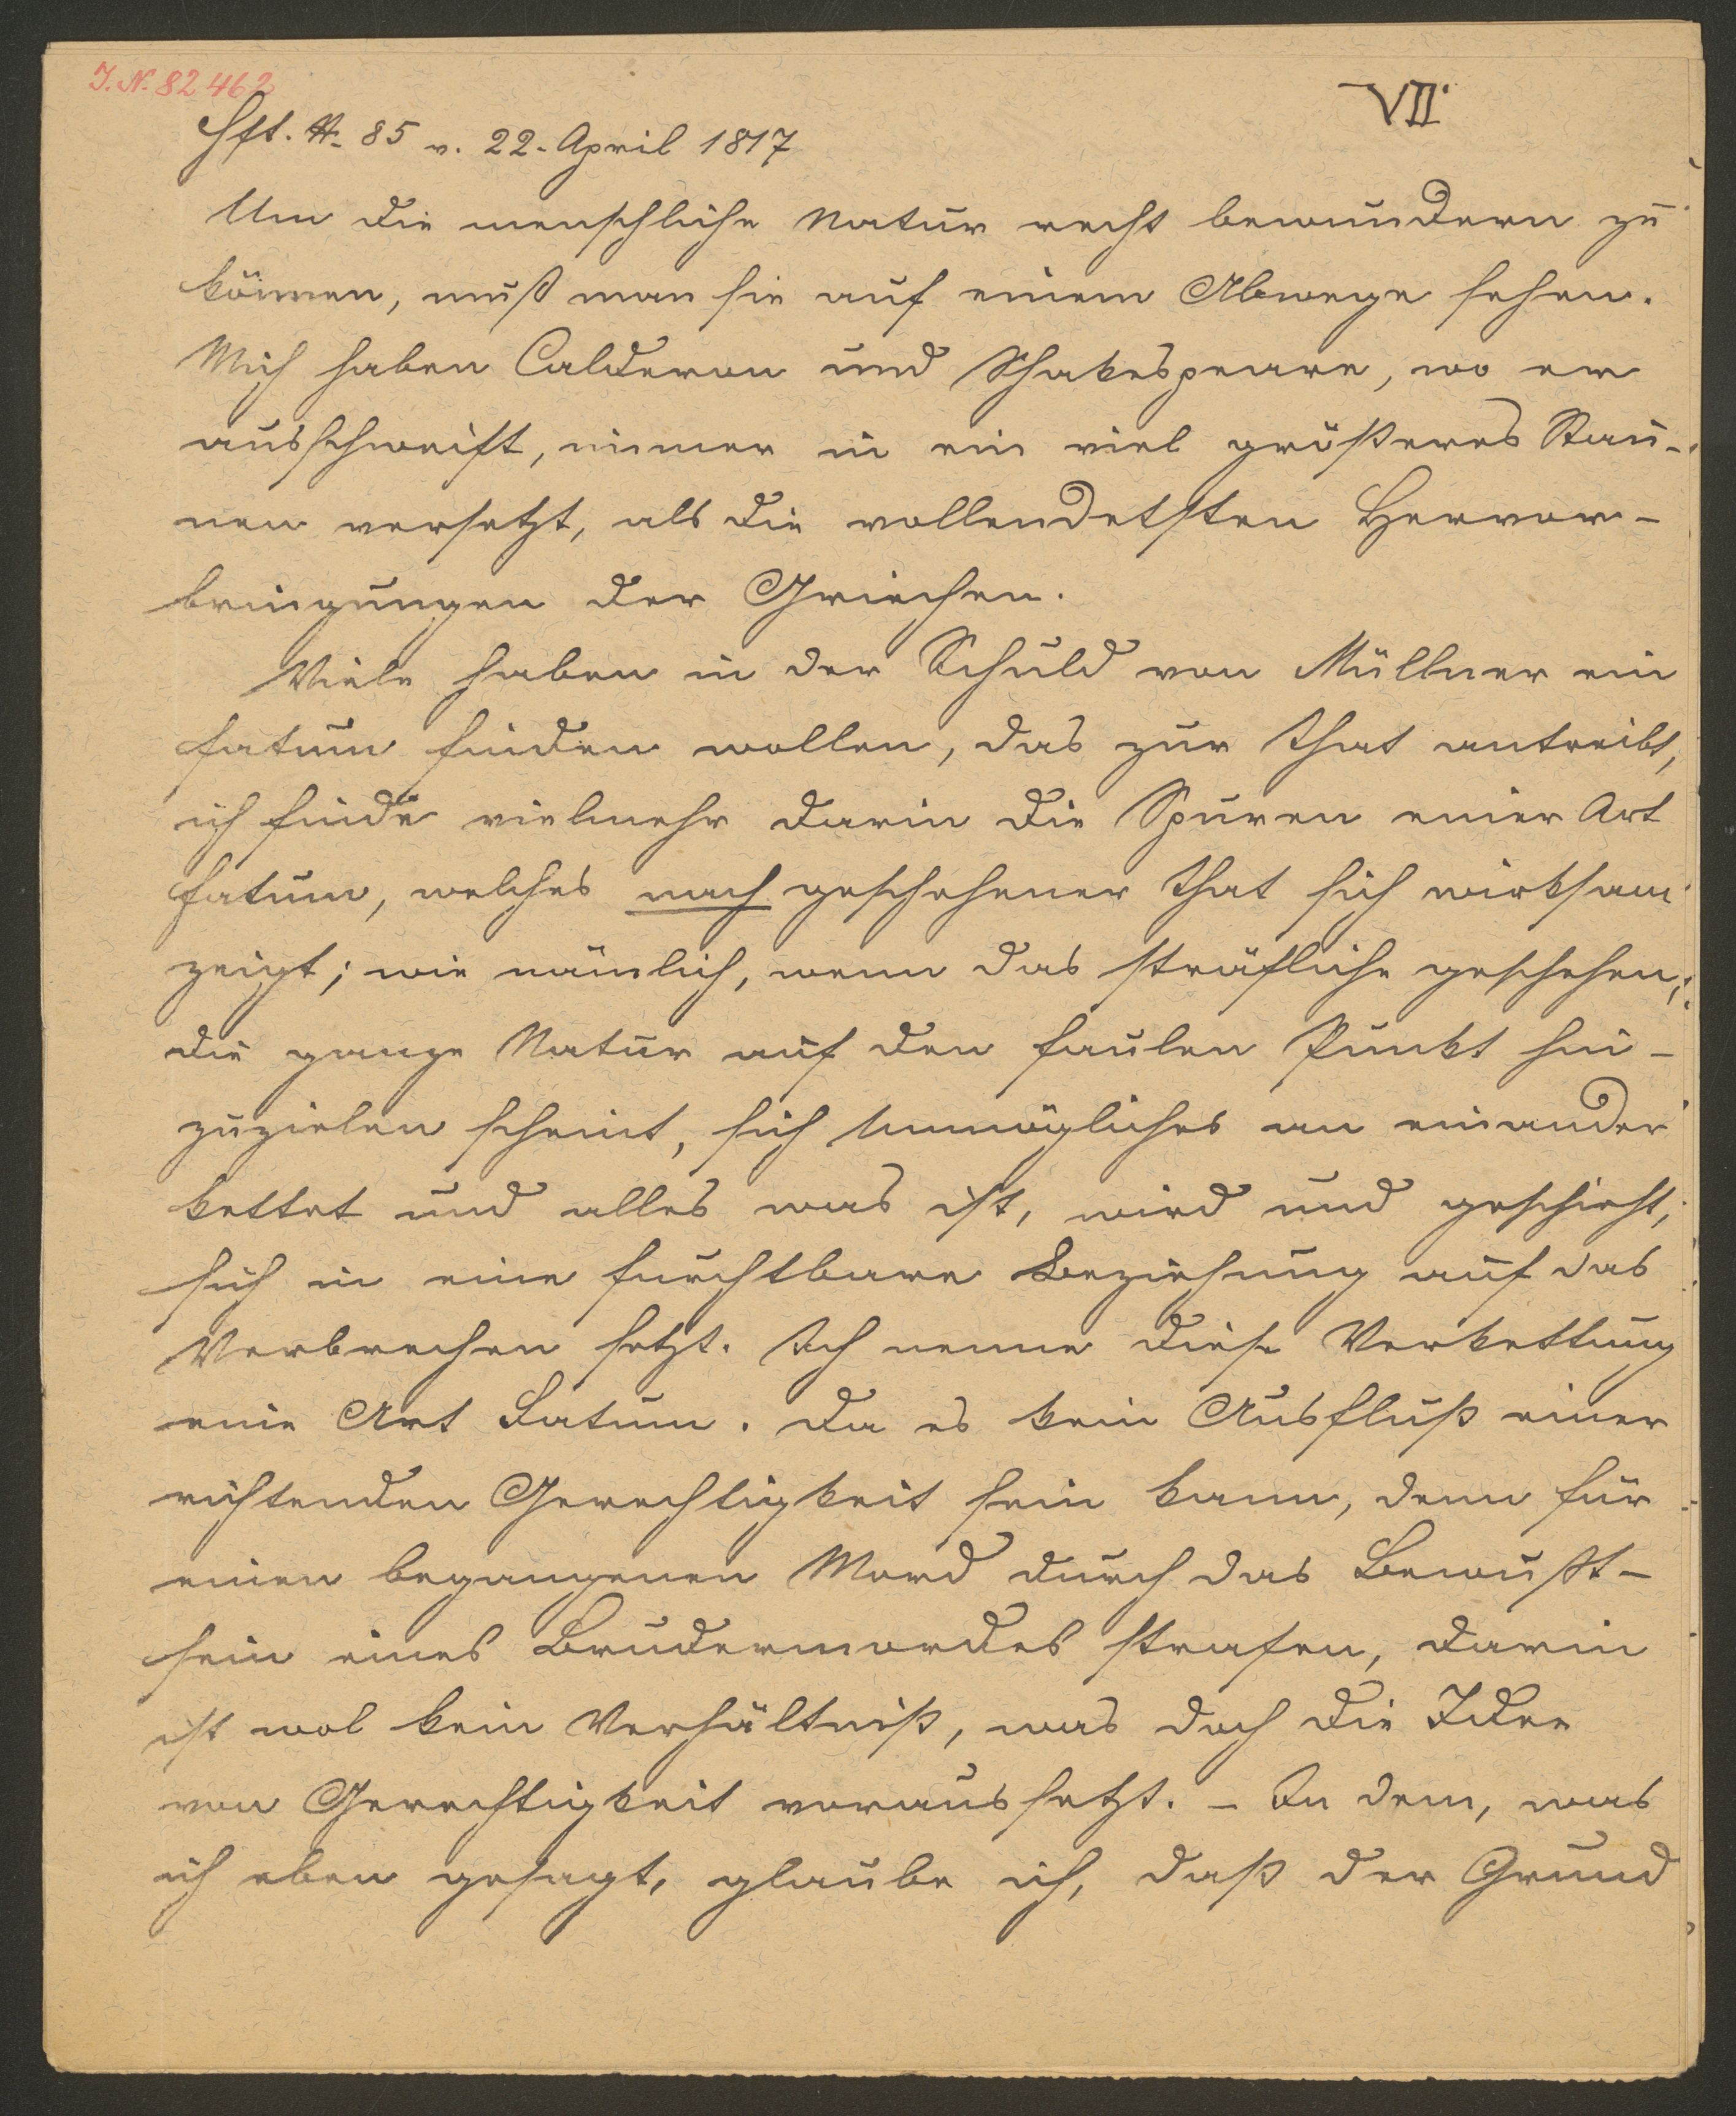 J.N. 82462
VII
Hft. A. 85 v. 22. April 1817
Um die menschliche Natur recht bewundern zu
können, muß man sie auf einem Abwege sehen.
Mich haben Calderon und Shakespeare, wo er
ausschweift, immer in ein viel größeres Stau-
nen versetzt, als die vollendetsten Hervor-
bringungen der Griechen.
Viele haben in der Schuld von Müllner ein
Fatum finden wollen, das zur That antreibt,
ich finde vielmehr darin die Spuren einer Art
Fatum, welches nach geschehener That sich wirksam
zeigt; wie nämlich, wenn das sträfliche geschehen,
die ganze Natur auf den faulen Punkt hin-
zuzielen scheint, sich Unmögliches an einander
kettet und alles was ist, wird und geschieht,
sich in eine furchtbare Beziehung auf das
Verbrechen setzt. Ich nenne diese Verkettung
eine Art Fatum. Da es kein Ausfluß einer
richtenden Gerechtigkeit sein kann, denn für
einen begangenen Mord durch das Bewußt-
sein eines Brudermordes strafen, darin
ist wol kein Verhältniß, was doch die Idee
von Gerechtigkeit voraussetzt. – In dem, was
ich eben gesagt, glaube ich, daß der Grund